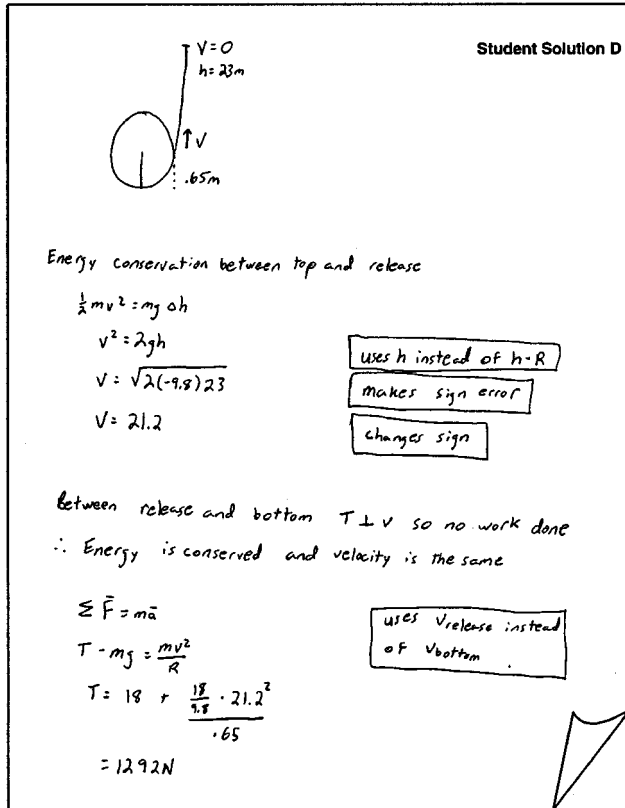 Student Solution D
V=0
h=23m
↑V
.65m
Energy conservation between top and release
½mv²=mg Δh
v²=2gh
V=√2(-9.8)23
V=21.2
uses h instead of h-R
makes sign error
changes sign
Between release and bottom T⊥v so no work done
∴ Energy is conserved and velocity is the same
ΣF̄=mā
T-mg=mv²/R
T=18+(18/9.8·21.2²)/.65
=1292N
uses Vrelease instead
of Vbottom.